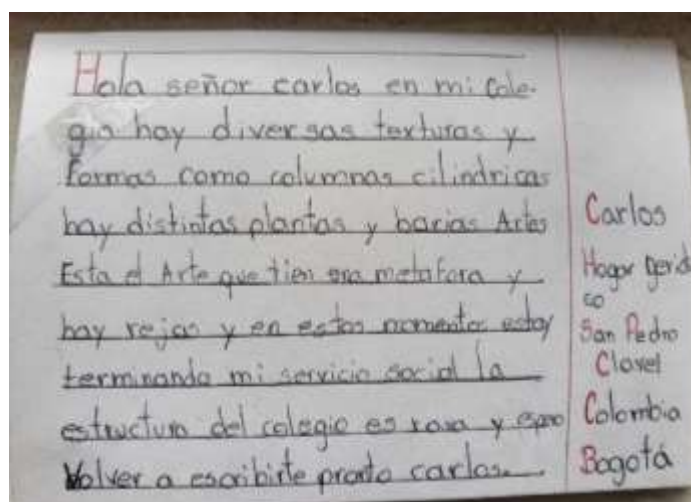 Hola señor carlos en mi Cole-
gio hay diversas texturas y
Formas como columnas cilindricas
hay distintas plantas y barias Artes
Esta el Arte que tien una metafora y
hay rejas y en estos momentos estoy
terminando mi servicio social la
estructura del colegio es rosa y espero
Volver a escribirte pronto carlos.
Carlos
Hogar
co
San Pedro
Clavel
Colombia
Bogotá